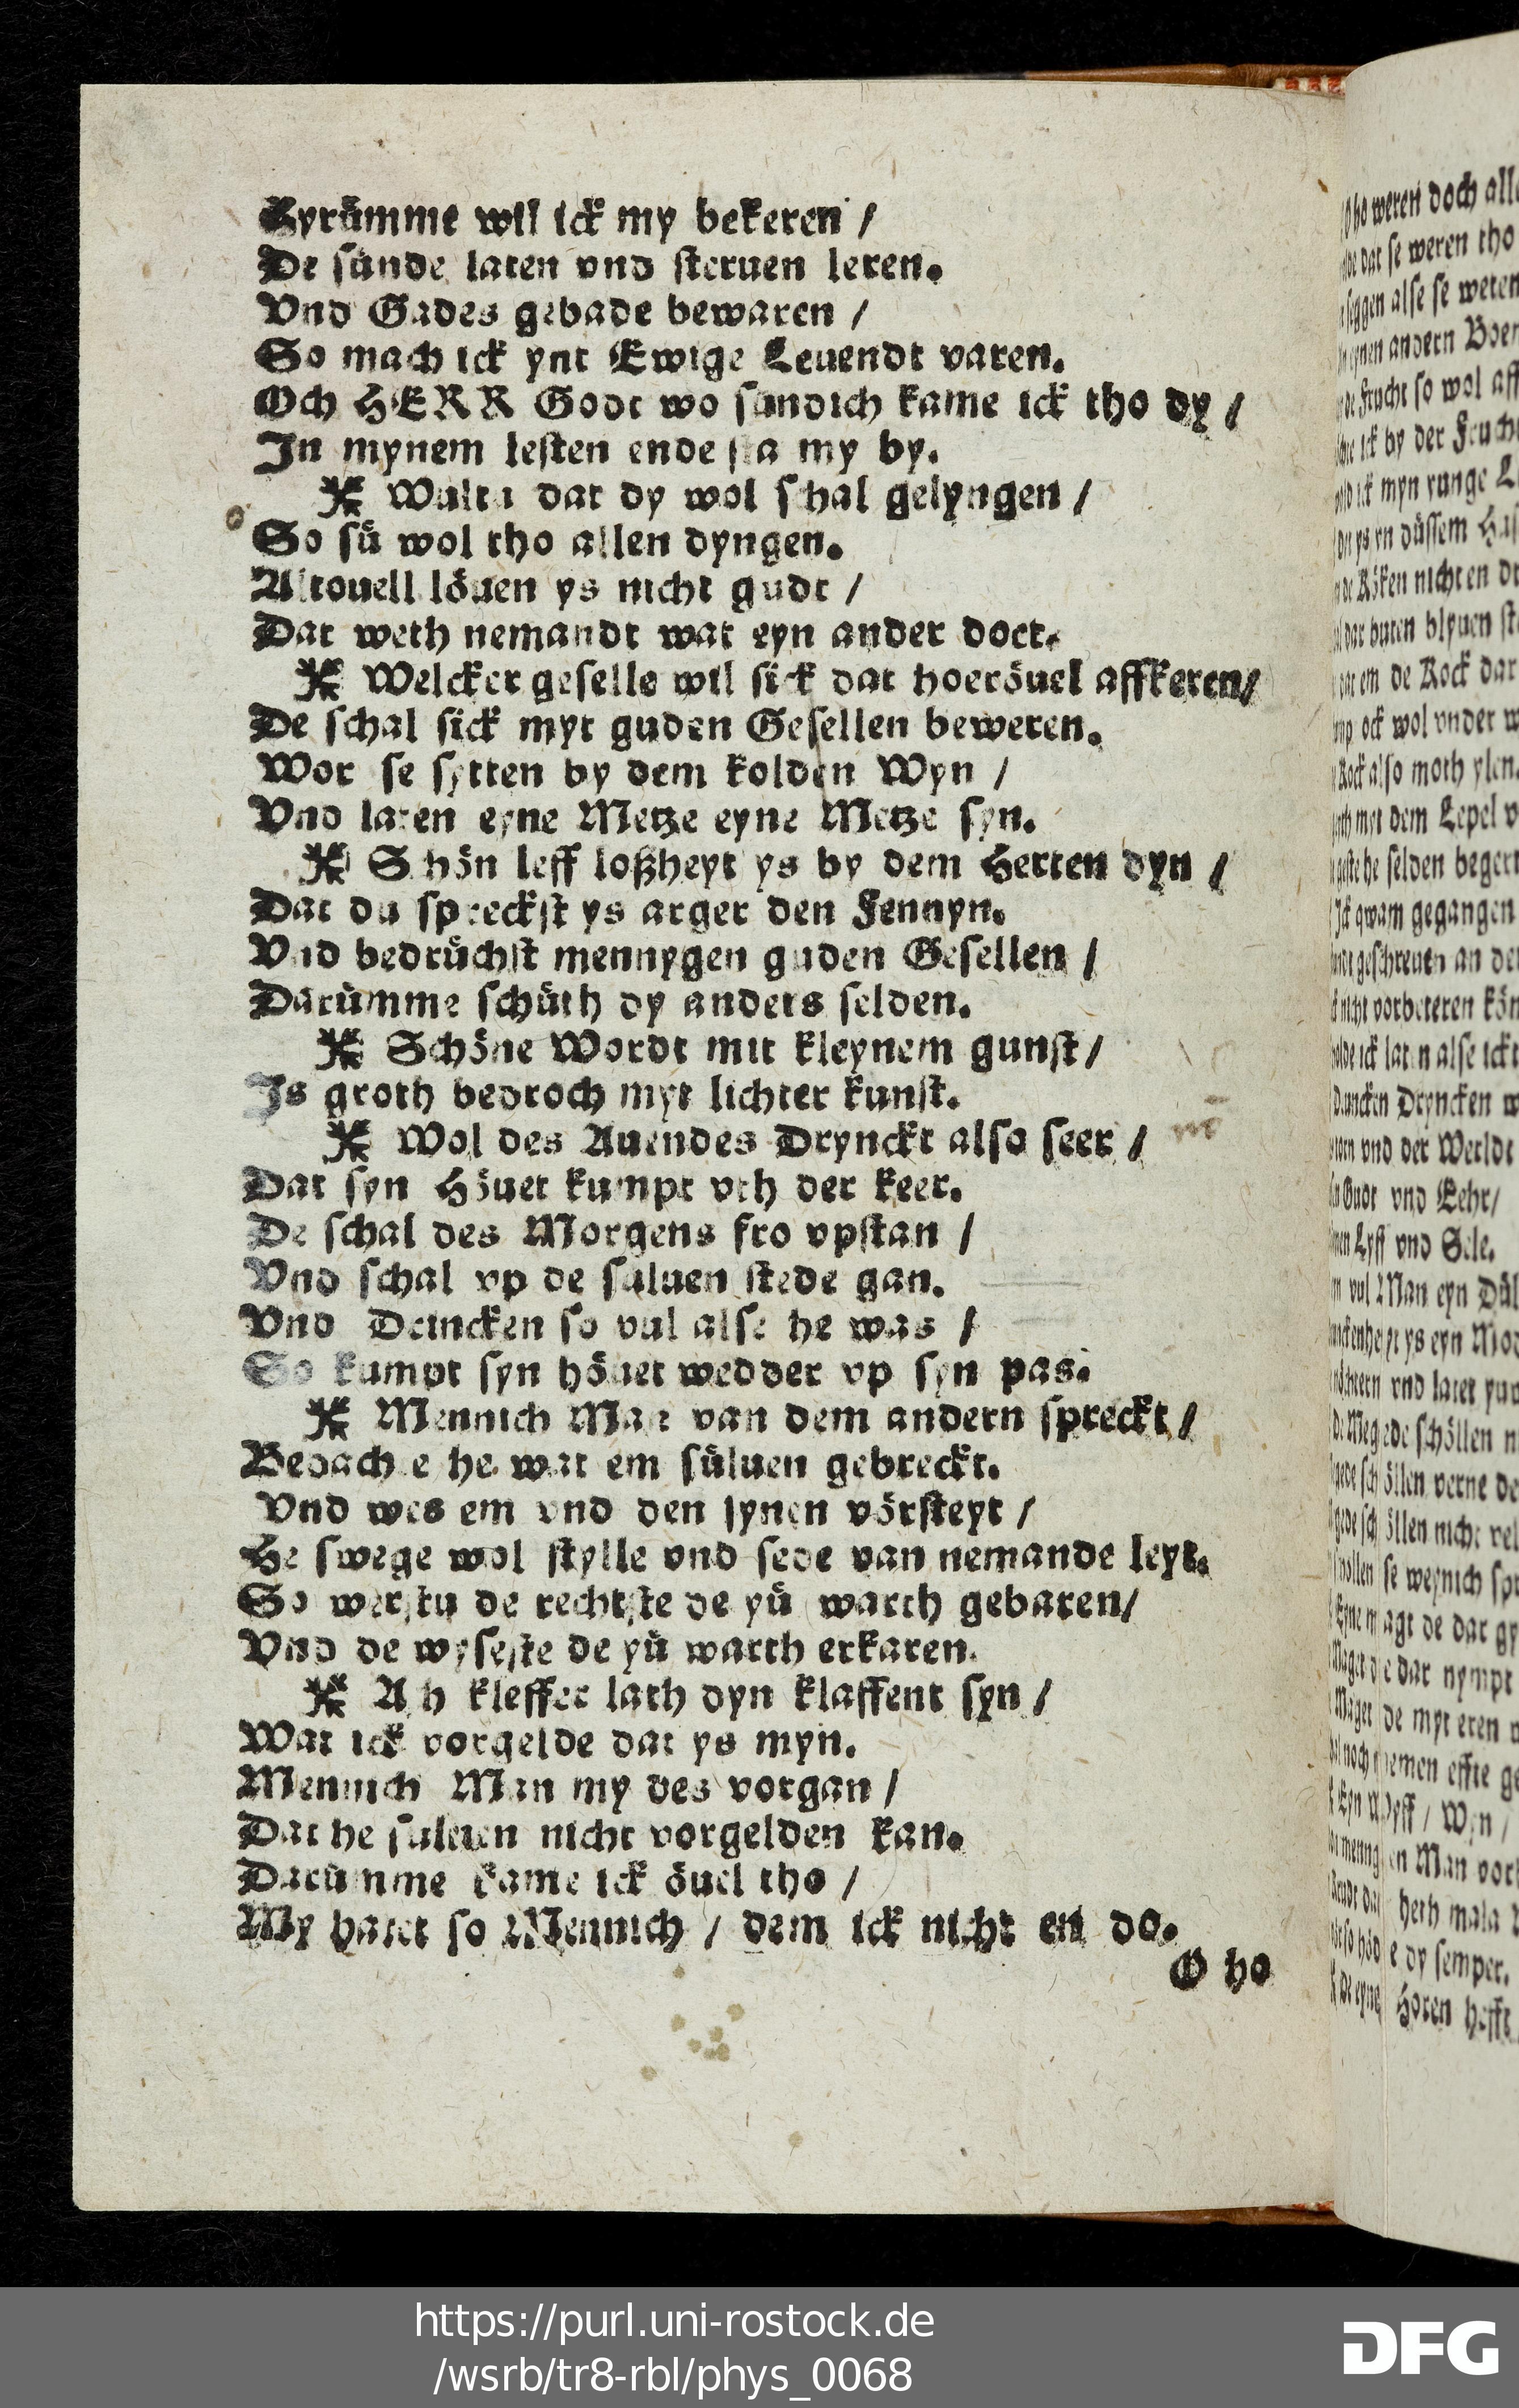 Hyrümme wil ick my bekeren /
De sünde laten vnd steruen leren.
Vnd Gades gebade bewaren /
So mach ick ynt Ewige Leuendt varen.
Och HERR Godt wo sündich kame ick tho dy /
In mynem lesten ende sta my by.
Wultu dat dy wol schal gelyngen /
So sü wol tho allen dyngen.
Altouell löuen ys nicht gudt /
Dat weth nemandt wat eyn ander doet.
Welcker geselle wil sick dat hoeröuel affkeren/
De schal sick myt guden Gesellen beweren.
Wor se sytten by dem kolden Wyn /
Vnd laten eyne Metze eyne Metze syn.
Schön leff loßheyt ys by dem Herten dyn /
Dat du spreckst ys arger den Fennyn.
Vnd bedrüchst mennygen guden Gesellen /
Darümme schüth dy anders selden.
Schöne Wordt mit kleynem gunst/
Is groth bedroch myt lichter kunst.
Wol des Auendes Drynckt also seer /
Dat syn Höuet kumpt vth der keer.
De schal des Morgens fro vpstan /
Vnd schal vp de süluen stede gan.
Vnd Drincken so vul alse he was /
So kumpt syn höuet wedder vp syn pas.
Mennich Man van dem andern spreckt /
Bedachte he wat em süluen gebreckt.
Vnd wes em vnd den synen vörsteyt /
He swege wol stylle vnd sede van nemande leyt.
So werstu de rechtste de yü warth gebaren/
Vnd de wyseste de yü warth erkaren.
Ah kleffer lath dyn klaffent syn /
Wat ick vorgelde dat ys myn.
Mennich Man my des vorgan /
Dat he süluen nicht vorgelden kan.
Darümme kame ick öuel tho /
My hatet so Mennich / dem ick nicht en do.
O ho
https://purl.uni-rostock.de
/wsrb/tr8-rbl/phys_0068
DFG